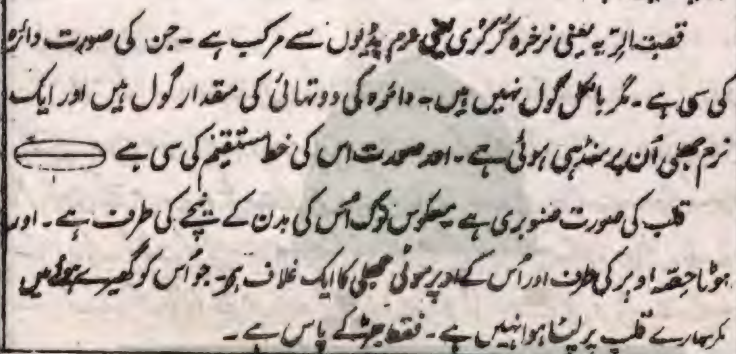 قصبتہ الریہ یعنی نرخرہ کرکری یعنی نرم ہڈیوں سے مرکب ہے ۔ جن کی صورت دائرہ
کی سی ہے ۔ مگر بالکل گول نہیں ہیں ۔ دائرہ کی دو تہائی کی مقدار گول ہیں اور ایک
نرم جھلی اُن پر منڈہی ہوئی ہے ۔ اور صورت اس کی خط مستقیم کی سی ہے
قلب کی صورت صنوبری ہے معکوس نوک اُس کی بدن کے نیچے کی طرف ہے ۔ اور
موٹا حصہ اوپر کی طرف اور اُس کے اوپر موٹی جھلی کا ایک غلاف ہے ۔ جو اُس کو گھیرے ہوئے ہیں
مگر سارے قلب پر لپٹا ہوا نہیں ہے ۔ فقط جڑ کے پاس ہے ۔